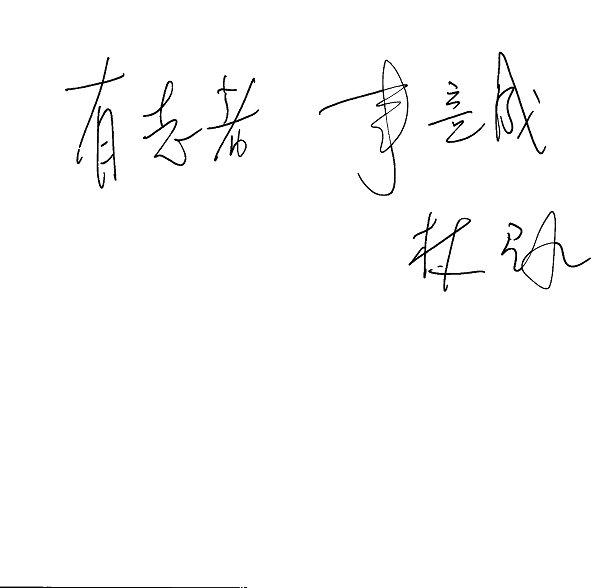 有志者 事竟成
林